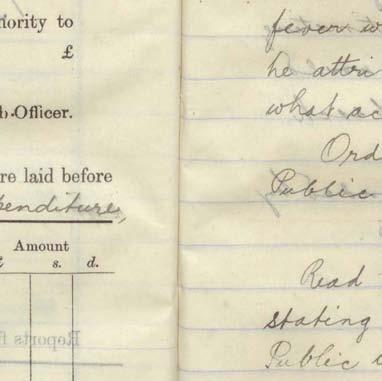 hority to
£
b-Officer.
re laid before
penditure,
Amount
£ s. d.
Reports f
fever w
he attri
what ac
Ord
Public
Read
stating
Public